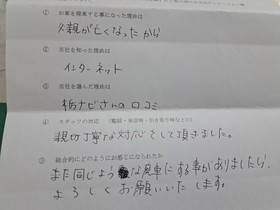 ① お車を廃車する事になった理由は
父親が亡くなったから
② 当社を知った理由は
インターネット
③ 当社を選んだ理由は
栃ナビさんの口コミ
④ スタッフの対応 (電話・来店時・引き取り時など)
親切丁寧な対応をして頂きました。
⑤ 総合的にどのようにお感じになられたか
また同じような廃車にする事がありましたら、
よろしくお願いいたします。